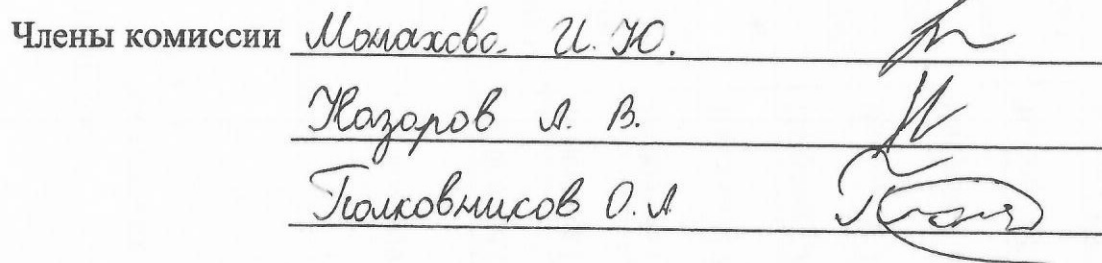 Члены комиссии Монахова И. Ю.
Назаров А. В.
Полковников О. А